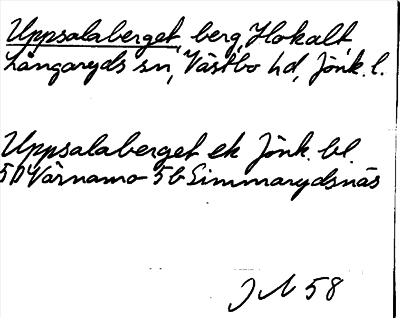 Uppsalaberget, berg, Hokalt,
Långaryds sn, Västbo hd, Jönk. l.
Uppsalaberget ek Jönk. bl.
5D Värnamo 5b Simmarydsnäs
58